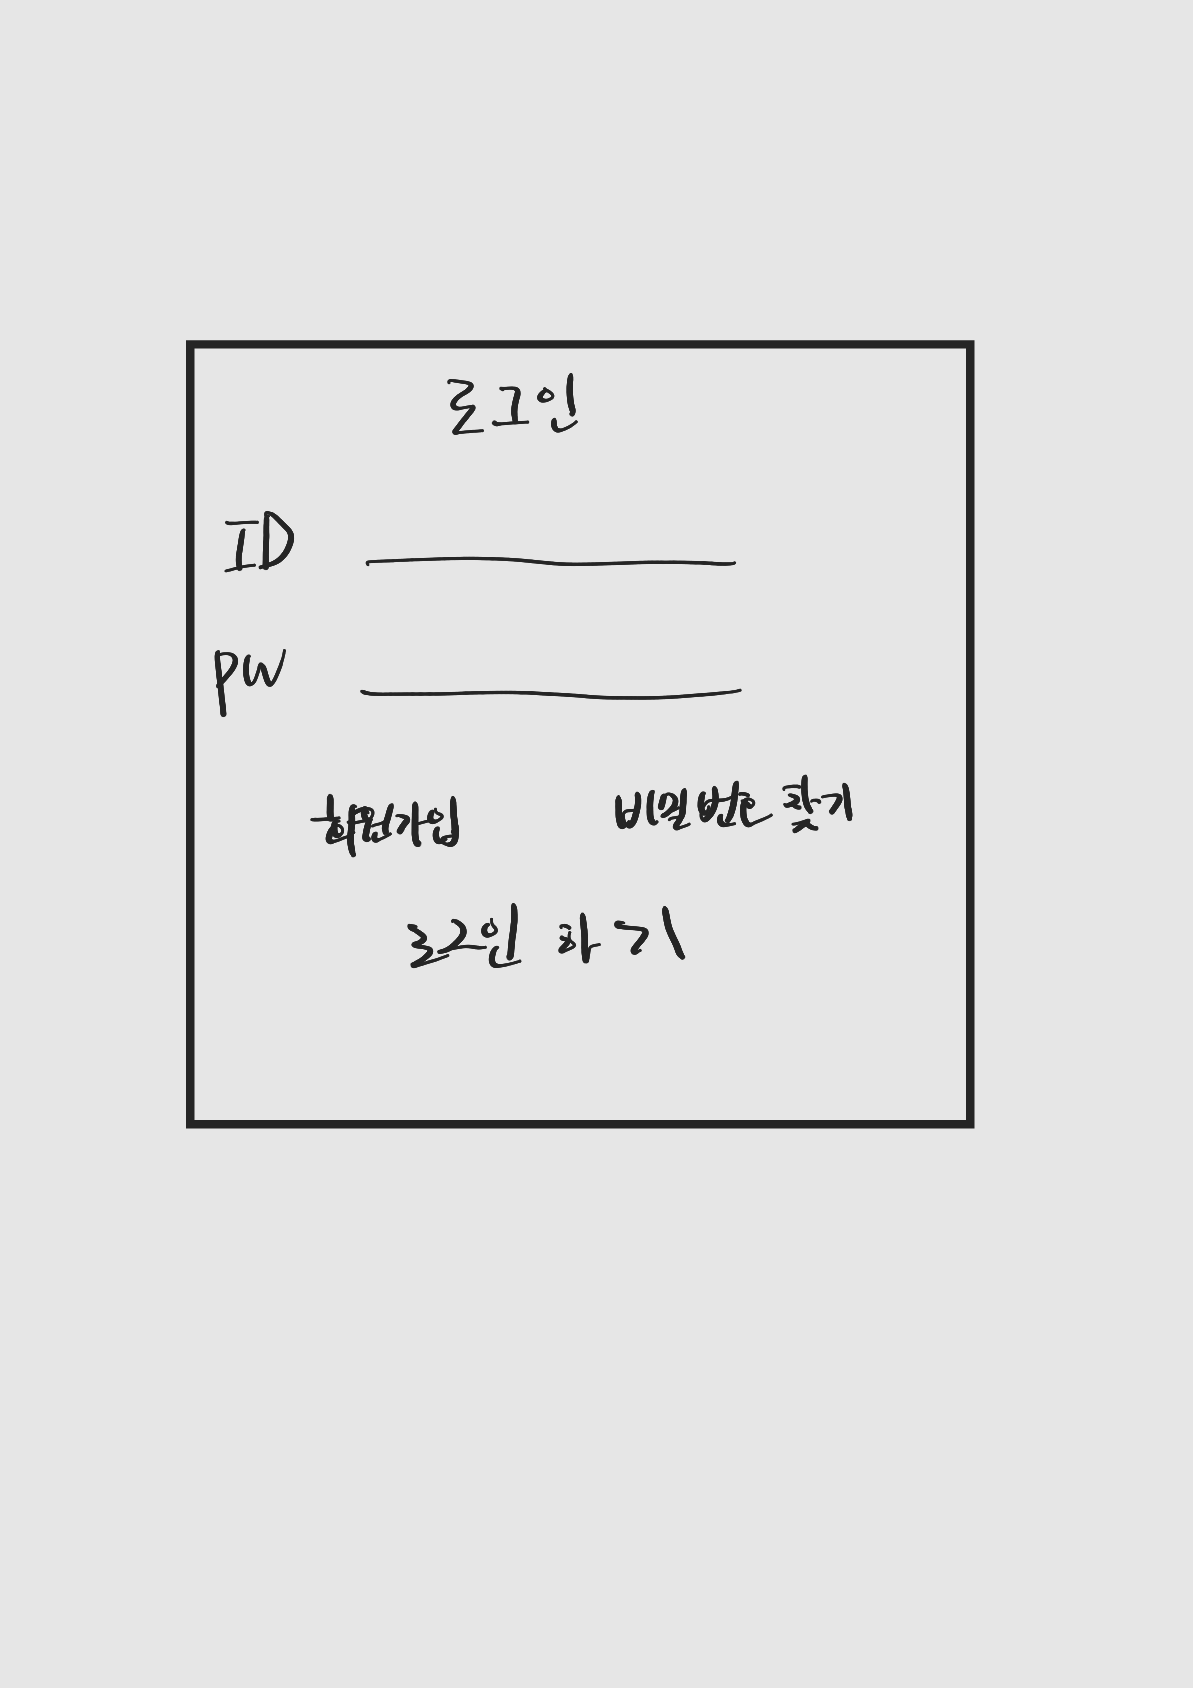 로그인
ID
PW
회원가입 비밀번호 찾기
로그인 하기